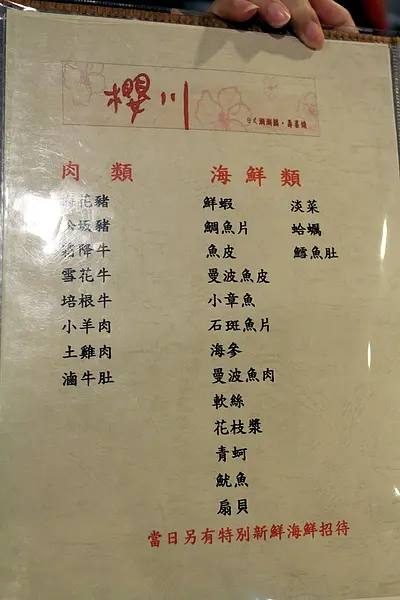 櫻川
日式涮涮鍋・壽喜燒
肉類
海鮮類
花豬
坂豬
霜降牛
雪花牛
培根牛
小羊肉
土雞肉
滷牛肚
鮮蝦
鯛魚片
魚皮
曼波魚皮
小章魚
石斑魚片
海參
曼波魚肉
軟絲
花枝漿
青蚵
魷魚
扇貝
淡菜
蛤蠣
鱈魚肚
當日另有特別新鮮海鮮招待